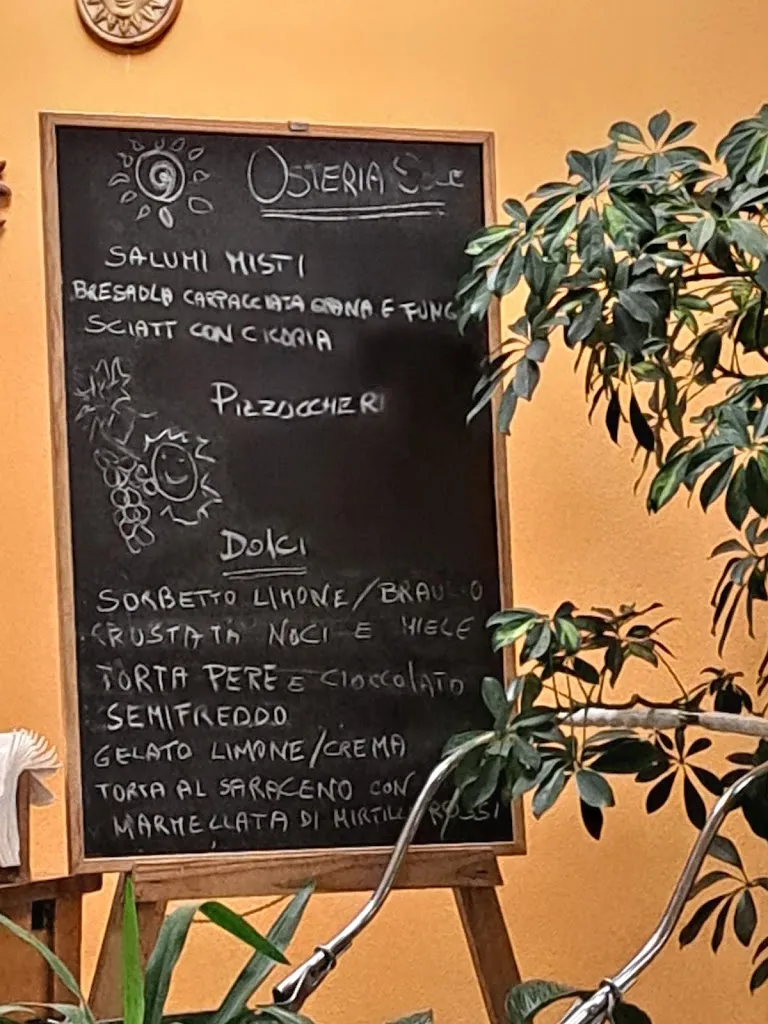 OSTERIA Sole
SALUMI MISTI
BRESAOLA CARPACCIATA GRANA E FUNG
SCIATT CON CICORIA
PIZZOCCHERI
Dolci
SORBETTO LIMONE/BRAULIO
CRUSTATA NOCI E MIELE
TORTA PERE E CIOCCOLATO
SEMIFREDDO
GELATO LIMONE/CREMA
TORTA AL SARACENO CON
MARMELLATA DI MIRTILLI ROSSI